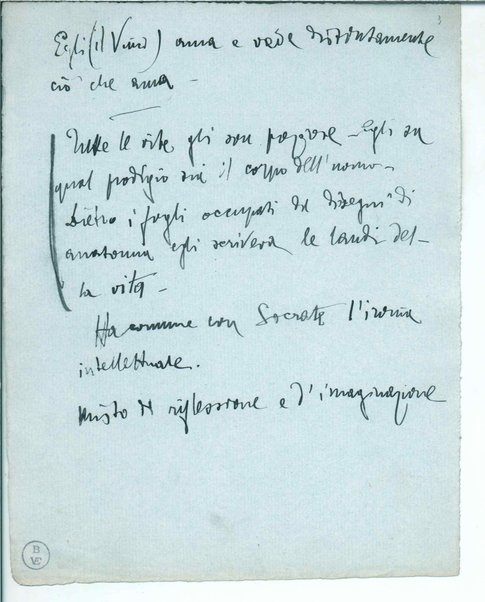 3
Egli (il Vinci) ama e vede distintamente
ciò che ama -
Tutte le vite gli son preziose - Egli sa
qual prodigio sia il corpo dell'uomo -
Dietro i fogli occupati da disegni di
anatomia egli scriveva le laudi del-
la vita -
Ha comune con Socrate l'ironia
intellettuale.
Misto di riflessione e d'imaginazione
B
VE